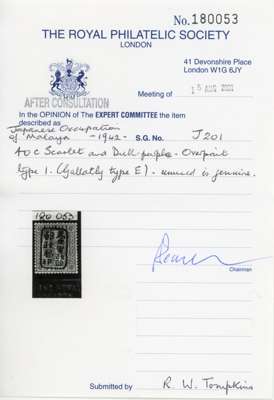 No. 180053
THE ROYAL PHILATELIC SOCIETY
LONDON
41 Devonshire Place
London W1G 6JY
Meeting of
AFTER CONSULTATION
In the OPINION OF The EXPERT COMMITTEE the item
described as
Japanese Occupation
of Malaya - 1942 - S.G. No. J201
40c Scarlet and Dull-purple. Overprint
type 1. (Gallatly type E). unused is genuine.
180 053
Chairman
Submitted by R. W. Tompkins